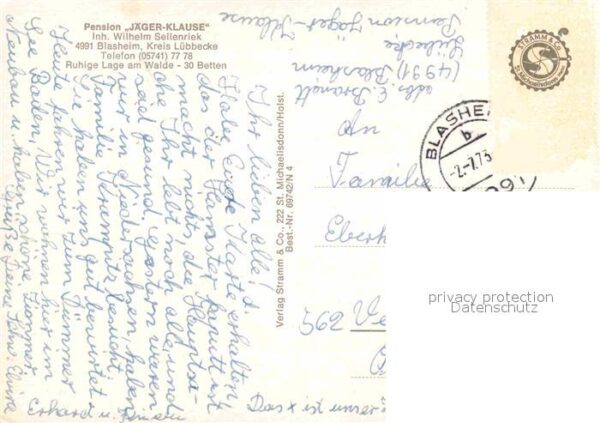 Pension „JÄGER-KLAUSE"
Inh. Wilhelm Sellenriek
4991 Blasheim, Kreis Lübbecke
Telefon (05741) 77 78
Ruhige Lage am Walde - 30 Betten
Ihr lieben alle!
Habe Eure Karte erhalten,
das der Fenster kaputt ist
macht nichts, die Hauptsa-
che Ihr lebt noch alle, und
seid gesund, gestern waren
wir in Niedersachsen, haben
Familie besucht,
Sie haben uns gut bewirtet.
Heute fahren wir zum Dümmer
See Baden. Wir wohnen hier im
Neubau, haben schöne Zimmer
Grüße Deine
Erhard u.
Das x ist
Verlag Stramm & Co., 222 St. Michaelisdonn/Holst.
Best.-Nr. 69742/N 4
Abs. E. Brandt
(4991) Blasheim
Lübecke
Pension Jäger-Klause
STRAMM & CO.
St. Michaelisdonn
BLASHEI
b
-2.-7.75
An
Familie
Eberh
562 Ve
privacy protection
Datenschutz